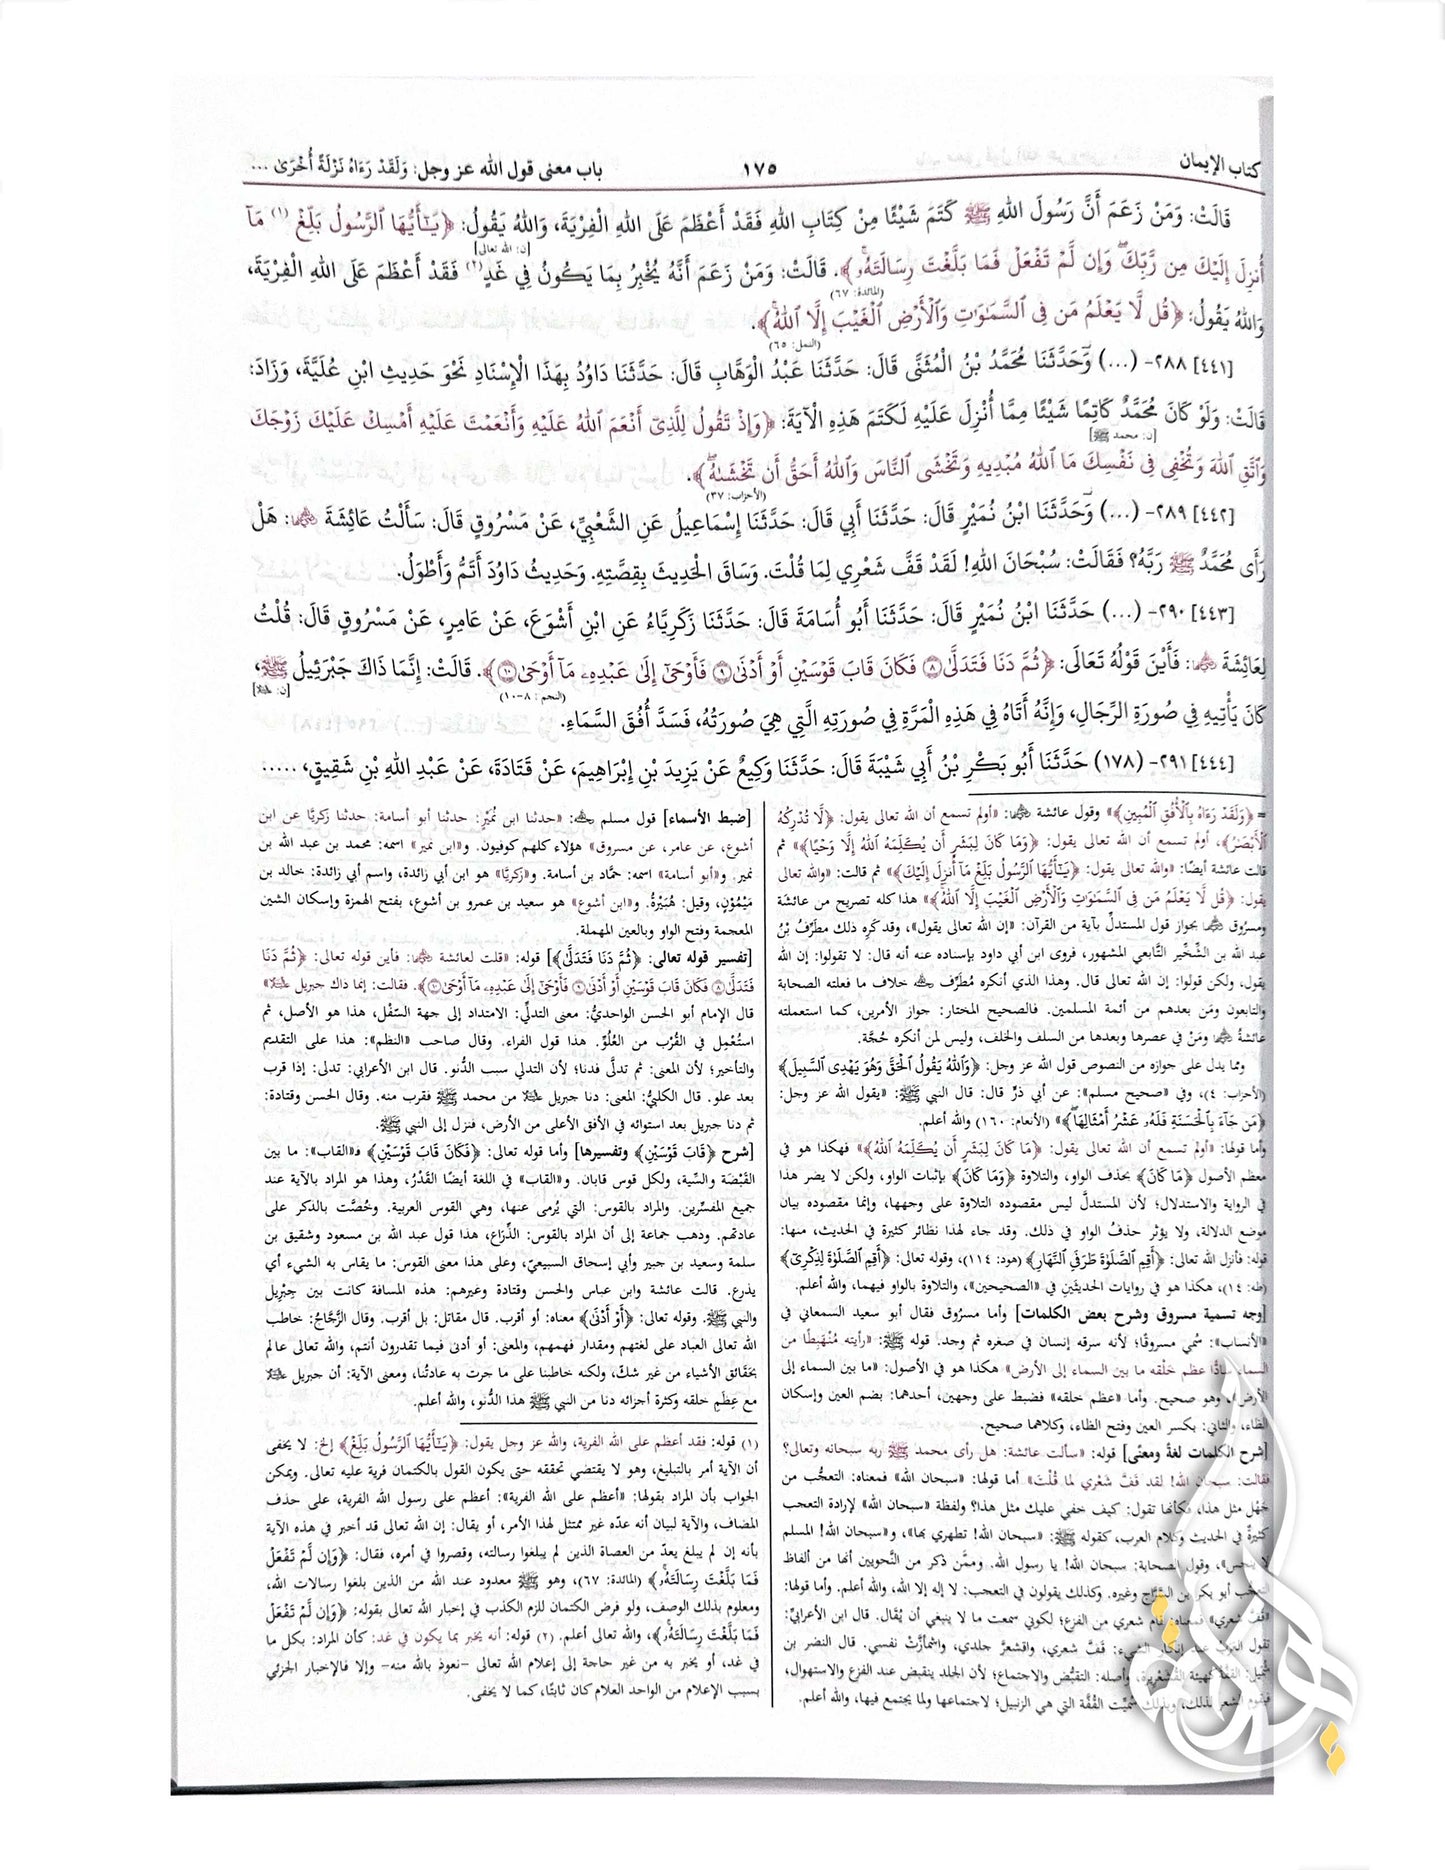 كتاب الإيمان
١٧٥
باب معنى قول الله عز وجل: وَلَقَدْ رَءَاهُ نَزْلَةً أُخْرَىٰ ...
قَالَتْ: وَمَنْ زَعَمَ أَنَّ رَسُولَ اللهِ ﷺ كَتَمَ شَيْئًا مِنْ كِتَابِ اللهِ فَقَدْ أَعْظَمَ عَلَى اللهِ الْفِرْيَةَ، وَاللهُ يَقُولُ: ﴿يَٰٓأَيُّهَا ٱلرَّسُولُ بَلِّغْ (١) مَآ
[ن: الله تعالى]
أُنزِلَ إِلَيْكَ مِن رَّبِّكَ ۖ وَإِن لَّمْ تَفْعَلْ فَمَا بَلَّغْتَ رِسَالَتَهُۥ﴾. قَالَتْ: وَمَنْ زَعَمَ أَنَّهُ يُخْبِرُ بِمَا يَكُونُ فِي غَدٍ (٢) فَقَدْ أَعْظَمَ عَلَى اللهِ الْفِرْيَةَ،
(المائدة: ٦٧)
وَاللهُ يَقُولُ: ﴿قُل لَّا يَعْلَمُ مَن فِى ٱلسَّمَٰوَٰتِ وَٱلْأَرْضِ ٱلْغَيْبَ إِلَّا ٱللَّهُ﴾.
(النمل: ٦٥)
[٤٤١] ٢٨٨- (...) وَحَدَّثَنَا مُحَمَّدُ بْنُ الْمُثَنَّى قَالَ: حَدَّثَنَا عَبْدُ الْوَهَّابِ قَالَ: حَدَّثَنَا دَاوُدُ بِهَذَا الْإِسْنَادِ نَحْوَ حَدِيثِ ابْنِ عُلَيَّةَ، وَزَادَ:
قَالَتْ: وَلَوْ كَانَ مُحَمَّدٌ كَاتِمًا شَيْئًا مِمَّا أُنْزِلَ عَلَيْهِ لَكَتَمَ هَذِهِ الْآيَةَ: ﴿وَإِذْ تَقُولُ لِلَّذِىٓ أَنْعَمَ ٱللَّهُ عَلَيْهِ وَأَنْعَمْتَ عَلَيْهِ أَمْسِكْ عَلَيْكَ زَوْجَكَ
[ن: محمد ﷺ]
وَٱتَّقِ ٱللَّهَ وَتُخْفِى فِى نَفْسِكَ مَا ٱللَّهُ مُبْدِيهِ وَتَخْشَى ٱلنَّاسَ وَٱللَّهُ أَحَقُّ أَن تَخْشَىٰهُ ۖ﴾.
(الأحزاب: ٣٧)
[٤٤٢] ٢٨٩- (...) وَحَدَّثَنَا ابْنُ نُمَيْرٍ قَالَ: حَدَّثَنَا أَبِي قَالَ: حَدَّثَنَا إِسْمَاعِيلُ عَنِ الشَّعْبِيِّ، عَنْ مَسْرُوقٍ قَالَ: سَأَلْتُ عَائِشَةَ رضي الله عنها: هَلْ
رَأَى مُحَمَّدٌ ﷺ رَبَّهُ؟ فَقَالَتْ: سُبْحَانَ اللهِ! لَقَدْ قَفَّ شَعْرِي لِمَا قُلْتَ. وَسَاقَ الْحَدِيثَ بِقِصَّتِهِ. وَحَدِيثُ دَاوُدَ أَتَمُّ وَأَطْوَلُ.
[٤٤٣] ٢٩٠- (...) حَدَّثَنَا ابْنُ نُمَيْرٍ قَالَ: حَدَّثَنَا أَبُو أُسَامَةَ قَالَ: حَدَّثَنَا زَكَرِيَّاءُ عَنِ ابْنِ أَشْوَعَ، عَنْ عَامِرٍ، عَنْ مَسْرُوقٍ قَالَ: قُلْتُ
لِعَائِشَةَ رضي الله عنها: فَأَيْنَ قَوْلُهُ تَعَالَى: ﴿ثُمَّ دَنَا فَتَدَلَّىٰ ۝٨ فَكَانَ قَابَ قَوْسَيْنِ أَوْ أَدْنَىٰ ۝٩ فَأَوْحَىٰٓ إِلَىٰ عَبْدِهِۦ مَآ أَوْحَىٰ ۝١٠﴾. قَالَتْ: إِنَّمَا ذَاكَ جَبْرَئِيلُ ﷺ،
(النجم: ٨-١٠)
[ن: عليه السلام]
كَانَ يَأْتِيهِ فِي صُورَةِ الرِّجَالِ، وَإِنَّهُ أَتَاهُ فِي هَذِهِ الْمَرَّةِ فِي صُورَتِهِ الَّتِي هِيَ صُورَتُهُ، فَسَدَّ أُفُقَ السَّمَاءِ.
[٤٤٤] ٢٩١- (١٧٨) حَدَّثَنَا أَبُو بَكْرِ بْنُ أَبِي شَيْبَةَ قَالَ: حَدَّثَنَا وَكِيعٌ عَنْ يَزِيدَ بْنِ إِبْرَاهِيمَ، عَنْ قَتَادَةَ، عَنْ عَبْدِ اللهِ بْنِ شَقِيقٍ، .....
= ﴿وَلَقَدْ رَءَاهُ بِٱلْأُفُقِ ٱلْمُبِينِ﴾» وقول عائشة رضي الله عنها: «أولم تسمع أن الله تعالى يقول: ﴿لَّا تُدْرِكُهُ
ٱلْأَبْصَٰرُ﴾، أولم تسمع أن الله تعالى يقول: ﴿وَمَا كَانَ لِبَشَرٍ أَن يُكَلِّمَهُ ٱللَّهُ إِلَّا وَحْيًا﴾» ثم
قالت عائشة أيضًا: «والله تعالى يقول: ﴿يَٰٓأَيُّهَا ٱلرَّسُولُ بَلِّغْ مَآ أُنزِلَ إِلَيْكَ﴾» ثم قالت: «والله تعالى
يقول: ﴿قُل لَّا يَعْلَمُ مَن فِى ٱلسَّمَٰوَٰتِ وَٱلْأَرْضِ ٱلْغَيْبَ إِلَّا ٱللَّهُ﴾» هذا كله تصريح من عائشة
ومسرُوق رضي الله عنها بجواز قول المستدلِّ بآية من القرآن: «إن الله تعالى يقول»، وقد كرِه ذلك مطَرِّفُ بْنُ
عبد الله بن الشِّخِّير التَّابعي المشهور، فروى ابن أبي داود بإسناده عنه أنه قال: لا تقولوا: إن الله
يقول، ولكن قولوا: إن الله تعالى قال. وهذا الذي أنكره مُطَرِّف رحمه الله خلاف ما فعلته الصحابة
والتابعون ومَن بعدهم من أئمة المسلمين. فالصحيح المختار: جواز الأمرين، كما استعملته
عائشةُ رضي الله عنها ومَنْ في عصرها وبعدها من السلف والخلف، وليس لمن أنكره حُجَّة.
ومما يدل على جوازه من النصوص قول الله عز وجل: ﴿وَٱللَّهُ يَقُولُ ٱلْحَقَّ وَهُوَ يَهْدِى ٱلسَّبِيلَ﴾
(الأحزاب: ٤)، وفي «صحيح مسلم»: عن أبي ذرٍّ قال: قال النبي ﷺ: «يقول الله عز وجل:
﴿مَن جَآءَ بِٱلْحَسَنَةِ فَلَهُۥ عَشْرُ أَمْثَالِهَا ۖ﴾» (الأنعام: ١٦٠) والله أعلم.
وأما قولها: «أولم تسمع أن الله تعالى يقول: ﴿مَا كَانَ لِبَشَرٍ أَن يُكَلِّمَهُ ٱللَّهُ﴾» فهكذا هو في
معظم الأصول ﴿مَا كَانَ﴾ بحذف الواو، والتلاوة ﴿وَمَا كَانَ﴾ بإثبات الواو، ولكن لا يضر هذا
في الرواية والاستدلال؛ لأن المستدلَّ ليس مقصوده التلاوة على وجهها، وإنما مقصوده بيان
موضع الدلالة، ولا يؤثر حذفُ الواو في ذلك. وقد جاء لهذا نظائر كثيرة في الحديث، منها:
قوله: فأنزل الله تعالى: ﴿أَقِمِ ٱلصَّلَوٰةَ طَرَفَيِ ٱلنَّهَارِ﴾ (هود: ١١٤)، وقوله تعالى: ﴿أَقِمِ ٱلصَّلَوٰةَ لِذِكْرِىٓ﴾
(طه: ١٤)، هكذا هو في روايات الحديثَين في «الصحيحين»، والتلاوة بالواو فيهما، والله أعلم.
[وجه تسمية مسروق وشرح بعض الكلمات] وأما مسرُوق فقال أبو سعيد السمعاني في
«الأنساب»: سُمي مسروقًا؛ لأنه سرقه إنسان في صغره ثم وجد. قوله ﷺ: «رأيته مُنْهَبِطًا من
السماء سادًّا عظم خلْقه ما بين السماء إلى الأرض» هكذا هو في الأصول: «ما بين السماء إلى
الأرض»، وهو صحيح. وأما «عظم خلقه» فضبط على وجهين، أحدهما: بضم العين وإسكان
الظاء، والثاني: بكسر العين وفتح الظاء، وكلاهما صحيح.
[شرح الكلمات لغةً ومعنًى] قوله: «سألت عائشة: هل رأى محمد ﷺ ربه سبحانه وتعالى؟
فقالت: سبحان الله! لقد قفَّ شعْري لما قُلْتَ» أما قولها: «سبحان الله» فمعناه: التعجُّب من
جَهْل مثل هذا، فكأنها تقول: كيف خفي عليك مثل هذا؟ ولفظة «سبحان الله» لإرادة التعجب
كثيرةٌ في الحديث وكلام العرب، كقوله ﷺ: «سبحان الله! تطهري بها»، و«سبحان الله! المسلم
لا ينجس»، وقول الصحابة: سبحان الله! يا رسول الله. وممَّن ذكر من النَّحويين أنها من ألفاظ
التعجُّب أبو بكر بن السَّرَّاج وغيره. وكذلك يقولون في التعجب: لا إله إلا الله، والله أعلم. وأما قولها:
«قفَّ شعري» فمعناه: قام شعري من الفزع؛ لكوني سمعت ما لا ينبغي أن يُقال. قال ابن الأعرابيّ:
تقول العرب عند إنكار الشيء: قفَّ شعري، واقشعرَّ جلدي، واشمأزَّتْ نفسي. قال النضر بن
شُميل: القفَّة كهيئة القُشَعْرِيرَة، وأصله: التقبُّض والاجتماع؛ لأن الجلد ينقبض عند الفزع والاستهوال،
فيقوم الشعر لذلك، وبذلك سُمِّيَت القُفَّة التي هي الزنبيل؛ لاجتماعها ولما يجتمع فيها، والله أعلم.
[ضبط الأسماء] قول مسلم رحمه الله: «حدثنا ابن نُمَيْرٍ: حدثنا أبو أسامة: حدثنا زكريَّا عن ابن
أشوع، عن عامر، عن مسروق» هؤلاء كلهم كوفيون. و«ابن نمير» اسمه: محمد بن عبد الله بن
نمير. و«أبو أسامة» اسمه: حمَّاد بن أسامة. و«زكريَّا» هو ابن أبي زائدة، واسم أبي زائدة: خالد بن
مَيْمُوْنٍ، وقيل: هُبَيْرَةُ. و«ابن أشوع» هو سعيد بن عمرو بن أشوع، بفتح الهمزة وإسكان الشين
المعجمة وفتح الواو وبالعين المهملة.
[تفسير قوله تعالى: ﴿ثُمَّ دَنَا فَتَدَلَّىٰ﴾] قوله: «قلت لعائشة رضي الله عنها: فأين قوله تعالى: ﴿ثُمَّ دَنَا
فَتَدَلَّىٰ ۝٨ فَكَانَ قَابَ قَوْسَيْنِ أَوْ أَدْنَىٰ ۝٩ فَأَوْحَىٰٓ إِلَىٰ عَبْدِهِۦ مَآ أَوْحَىٰ ۝١٠﴾. فقالت: إنما ذاك جبريل عليه السلام»
قال الإمام أبو الحسن الواحديُّ: معنى التدلِّي: الامتداد إلى جهة السّفْل، هذا هو الأصل، ثم
استُعْمِل في القُرْب من العُلُوِّ. هذا قول الفراء. وقال صاحب «النظم»: هذا على التقديم
والتأخير؛ لأن المعنى: ثم تدلَّى فدنا؛ لأن التدلي سبب الدُّنو. قال ابن الأعرابي: تدلى: إذا قرب
بعد علو. قال الكلبيُّ: المعنى: دنا جبريل عليه السلام من محمد ﷺ فقرب منه. وقال الحسن وقتادة:
ثم دنا جبريل بعد استوائه في الأفق الأعلى من الأرض، فنزل إلى النبي ﷺ.
[شرح ﴿قَابَ قَوْسَيْنِ﴾ وتفسيرها] وأما قوله تعالى: ﴿فَكَانَ قَابَ قَوْسَيْنِ﴾ فـ«القاب»: ما بين
القَبْضَة والسِّية، ولكل قوس قابان. و«القاب» في اللغة أيضًا القَدْرُ، وهذا هو المراد بالآية عند
جميع المفسِّرين. والمراد بالقوس: التي يُرمى عنها، وهي القوس العربية. وخُصَّت بالذكر على
عادتهم. وذهب جماعة إلى أن المراد بالقوس: الذِّرَاع، هذا قول عبد الله بن مسعود وشقيق بن
سلمة وسعيد بن جبير وأبي إسحاق السبيعيّ، وعلى هذا معنى القوس: ما يقاس به الشيء أي
يذرع. قالت عائشة وابن عباس والحسن وقتادة وغيرهم: هذه المسافة كانت بين جِبْرِيل
والنبي ﷺ. وقوله تعالى: ﴿أَوْ أَدْنَىٰ﴾ معناه: أو أقرب. قال مقاتل: بل أقرب. وقال الزَّجَّاجُ: خاطب
الله تعالى العباد على لغتهم ومقدار فهمهم، والمعنى: أو أدنى فيما تقدرون أنتم، والله تعالى عالم
بحَقائق الأشياء من غير شكّ، ولكنه خاطبنا على ما جرت به عادتُنا، ومعنى الآية: أن جبريل عليه السلام
مع عِظَم خلقه وكثرة أجزائه دنا من النبي ﷺ هذا الدُّنو، والله أعلم.
(١) قوله: فقد أعظم على الله الفرية، والله عز وجل يقول: ﴿يَٰٓأَيُّهَا ٱلرَّسُولُ بَلِّغْ﴾ إلخ: لا يخفى
أن الآية أمر بالتبليغ، وهو لا يقتضي تحققه حتى يكون القول بالكتمان فرية عليه تعالى. ويمكن
الجواب بأن المراد بقولها: «أعظم على الله الفرية»: أعظم على رسول الله الفرية، على حذف
المضاف، والآية لبيان أنه عدّه غير ممتثل لهذا الأمر، أو يقال: إن الله تعالى قد أخبر في هذه الآية
بأنه إن لم يبلغ يعدّ من العصاة الذين لم يبلغوا رسالته، وقصروا في أمره، فقال: ﴿وَإِن لَّمْ تَفْعَلْ
فَمَا بَلَّغْتَ رِسَالَتَهُۥ﴾ (المائدة: ٦٧)، وهو ﷺ معدود عند الله من الذين بلغوا رسالات الله،
ومعلوم بذلك الوصف، ولو فرض الكتمان للزم الكذب في إخبار الله تعالى بقوله: ﴿وَإِن لَّمْ تَفْعَلْ
فَمَا بَلَّغْتَ رِسَالَتَهُۥ﴾، والله تعالى أعلم. (٢) قوله: أنه يخبر بما يكون في غد: كأن المراد: بكل ما
في غد، أو يخبر به من غير حاجة إلى إعلام الله تعالى -نعوذ بالله منه- وإلا فالإخبار الجزئي
بسبب الإعلام من الواحد العلام كان ثابتًا، كما لا يخفى.